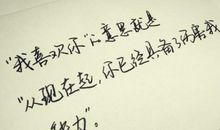 “我喜欢你”的意思就是
“从现在起，你已经具备了伤害我
能力”。